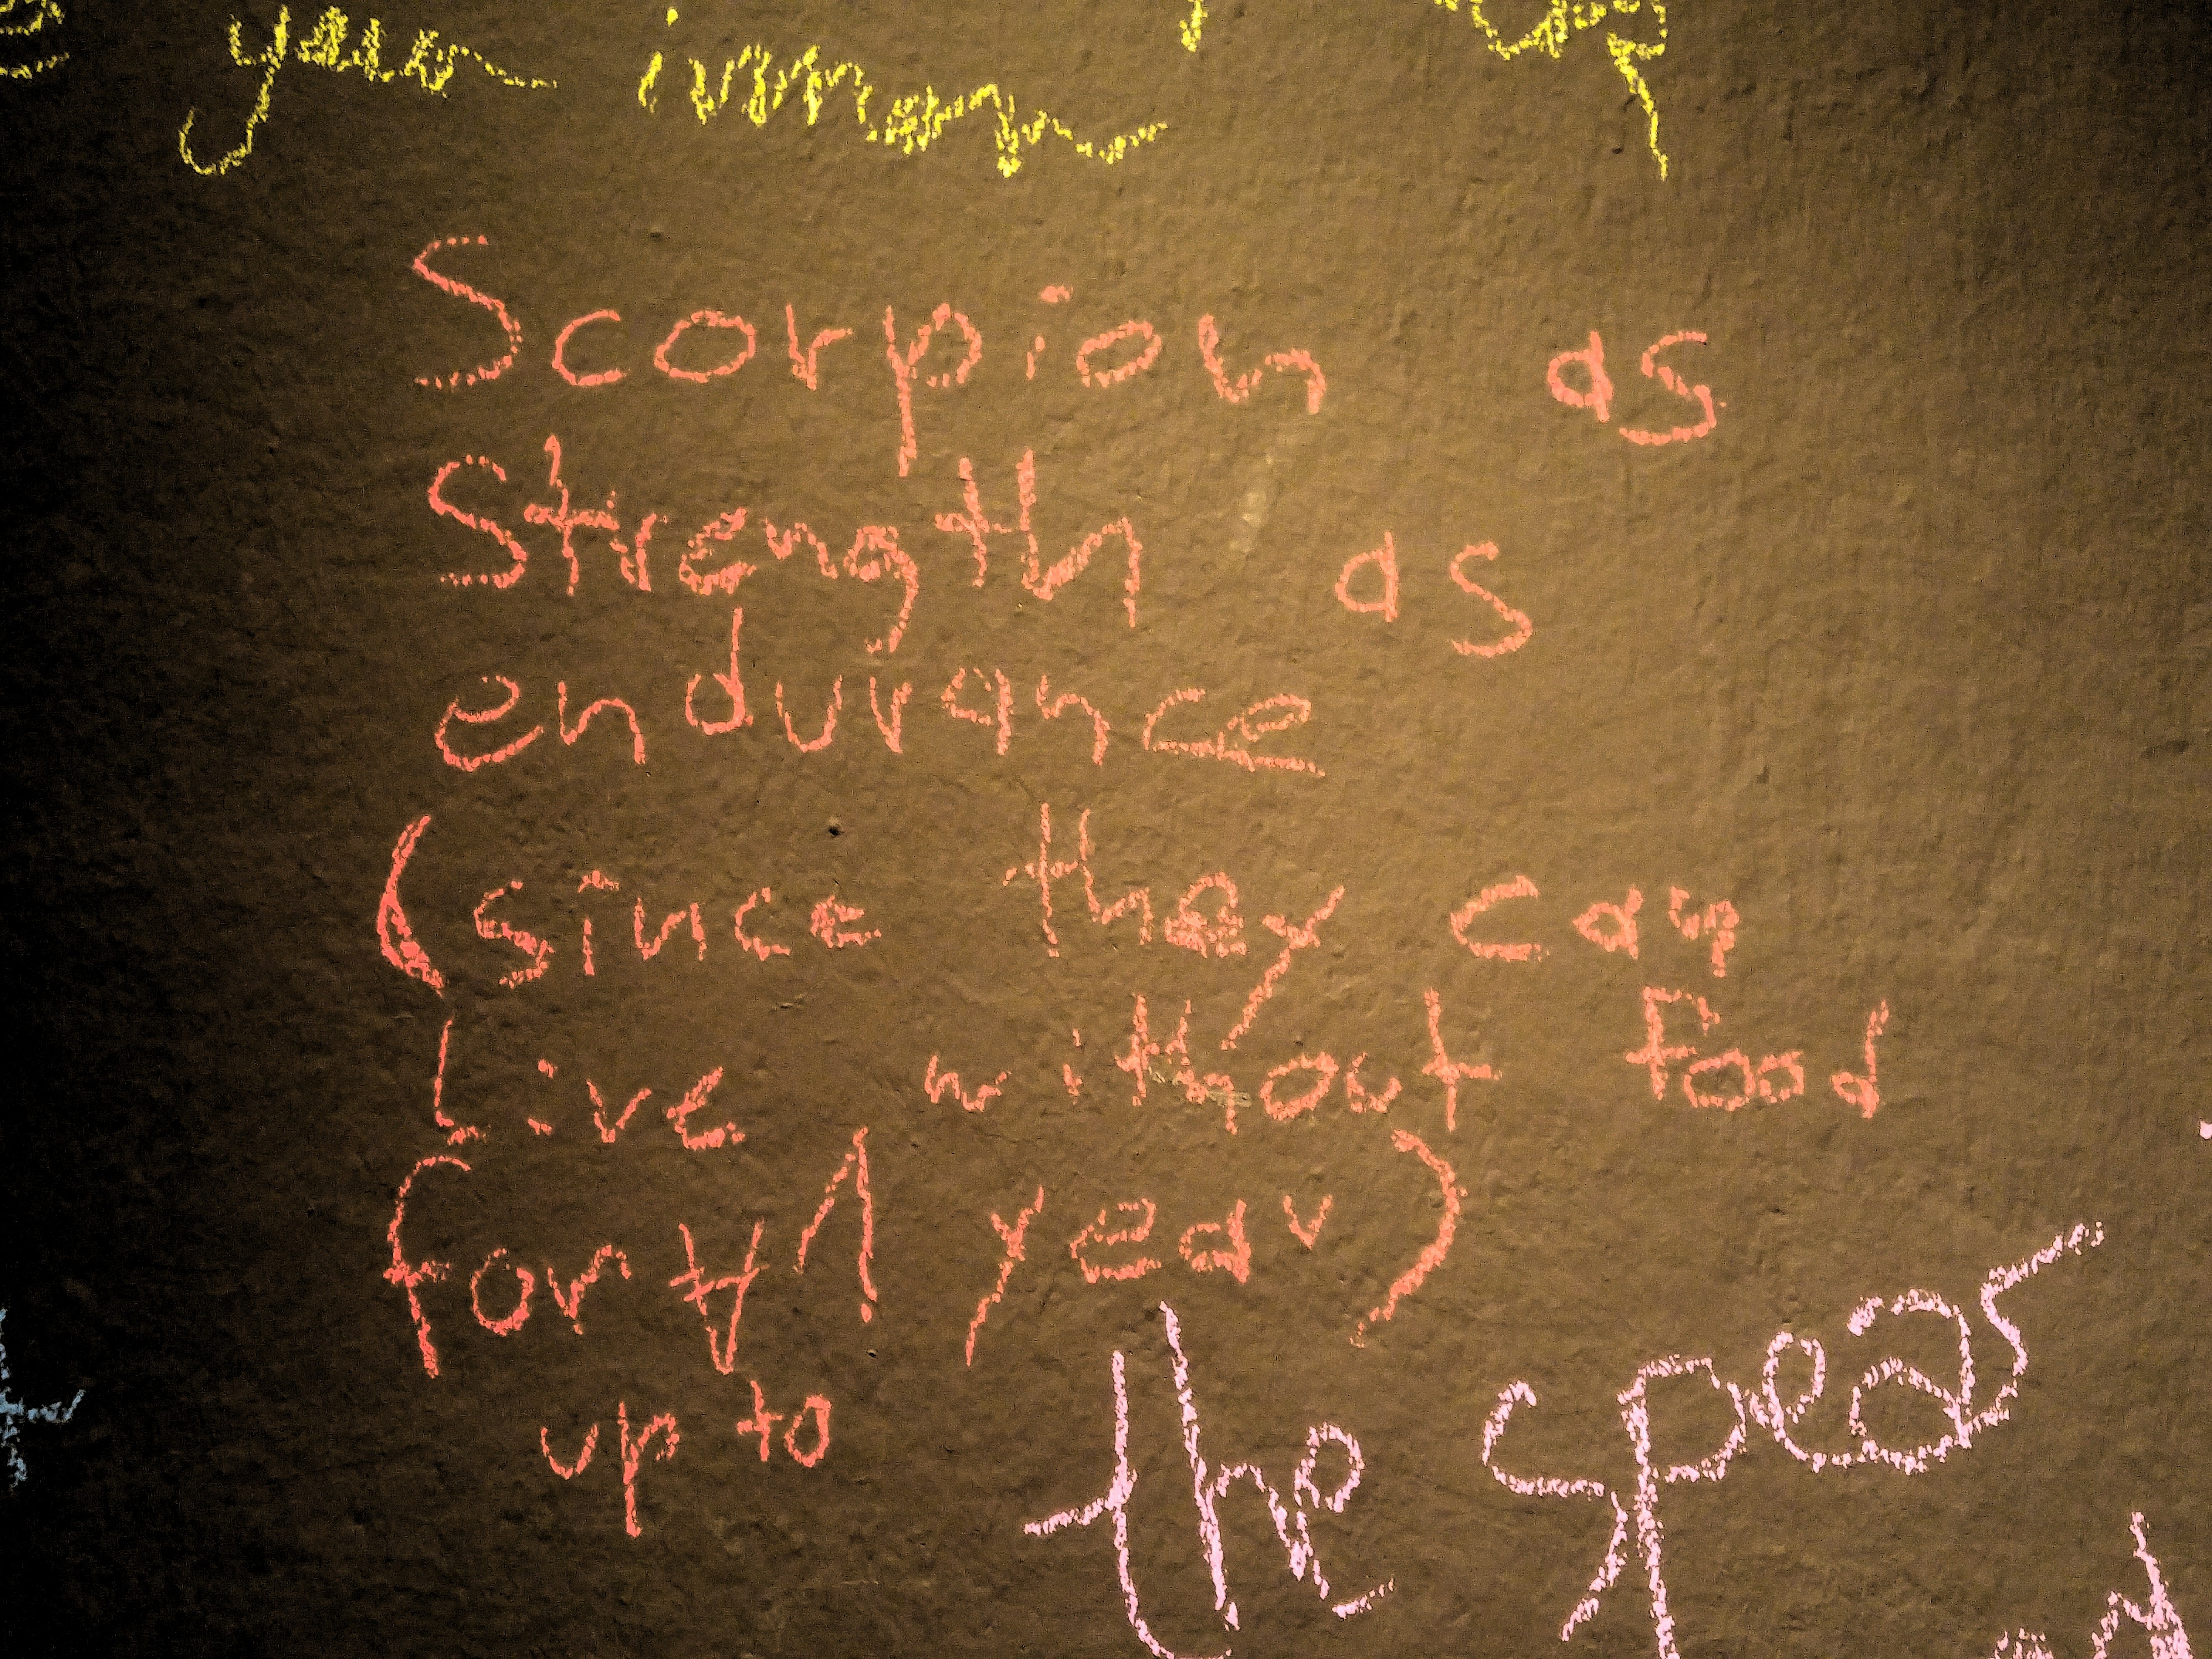 Scorpion as
Strength as
endurance
(since they can
Live without food
for 1 year)
up to
the spear